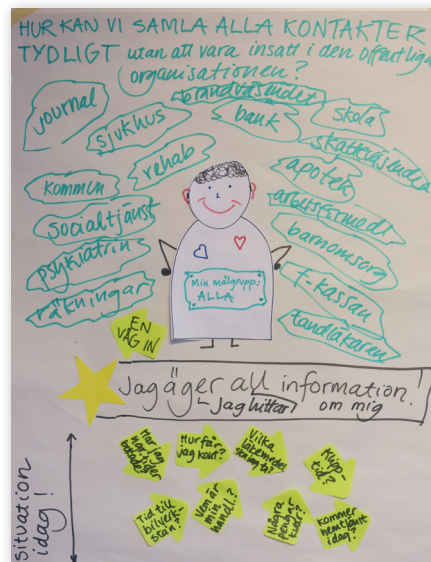 HUR KAN VI SAMLA ALLA KONTAKTER
TYDLIGT utan att vara insatt i den offentliga
organisationen?
journal
sjukhus
brandväsendet
bank
skola
skatteväsendet
rehab
apotek
kommun
arbetsförmedl
socialtjänst
barnomsorg
psykiatrin
f-kassan
räkningar
tandläkaren
Min målgrupp:
ALLA
EN
VÄG IN
Jag äger all information!
Jag hittar om mig
situation
idag!
Har jag
tider
Hur får
jag kont?
Vilka
läkemedel
ska jag ta?
Klipp-
tid?
Tid till
bilverk-
stan?
Vem är
min
handl.?
Några
pengar
kvar?
kommer
hemtjänst
idag?